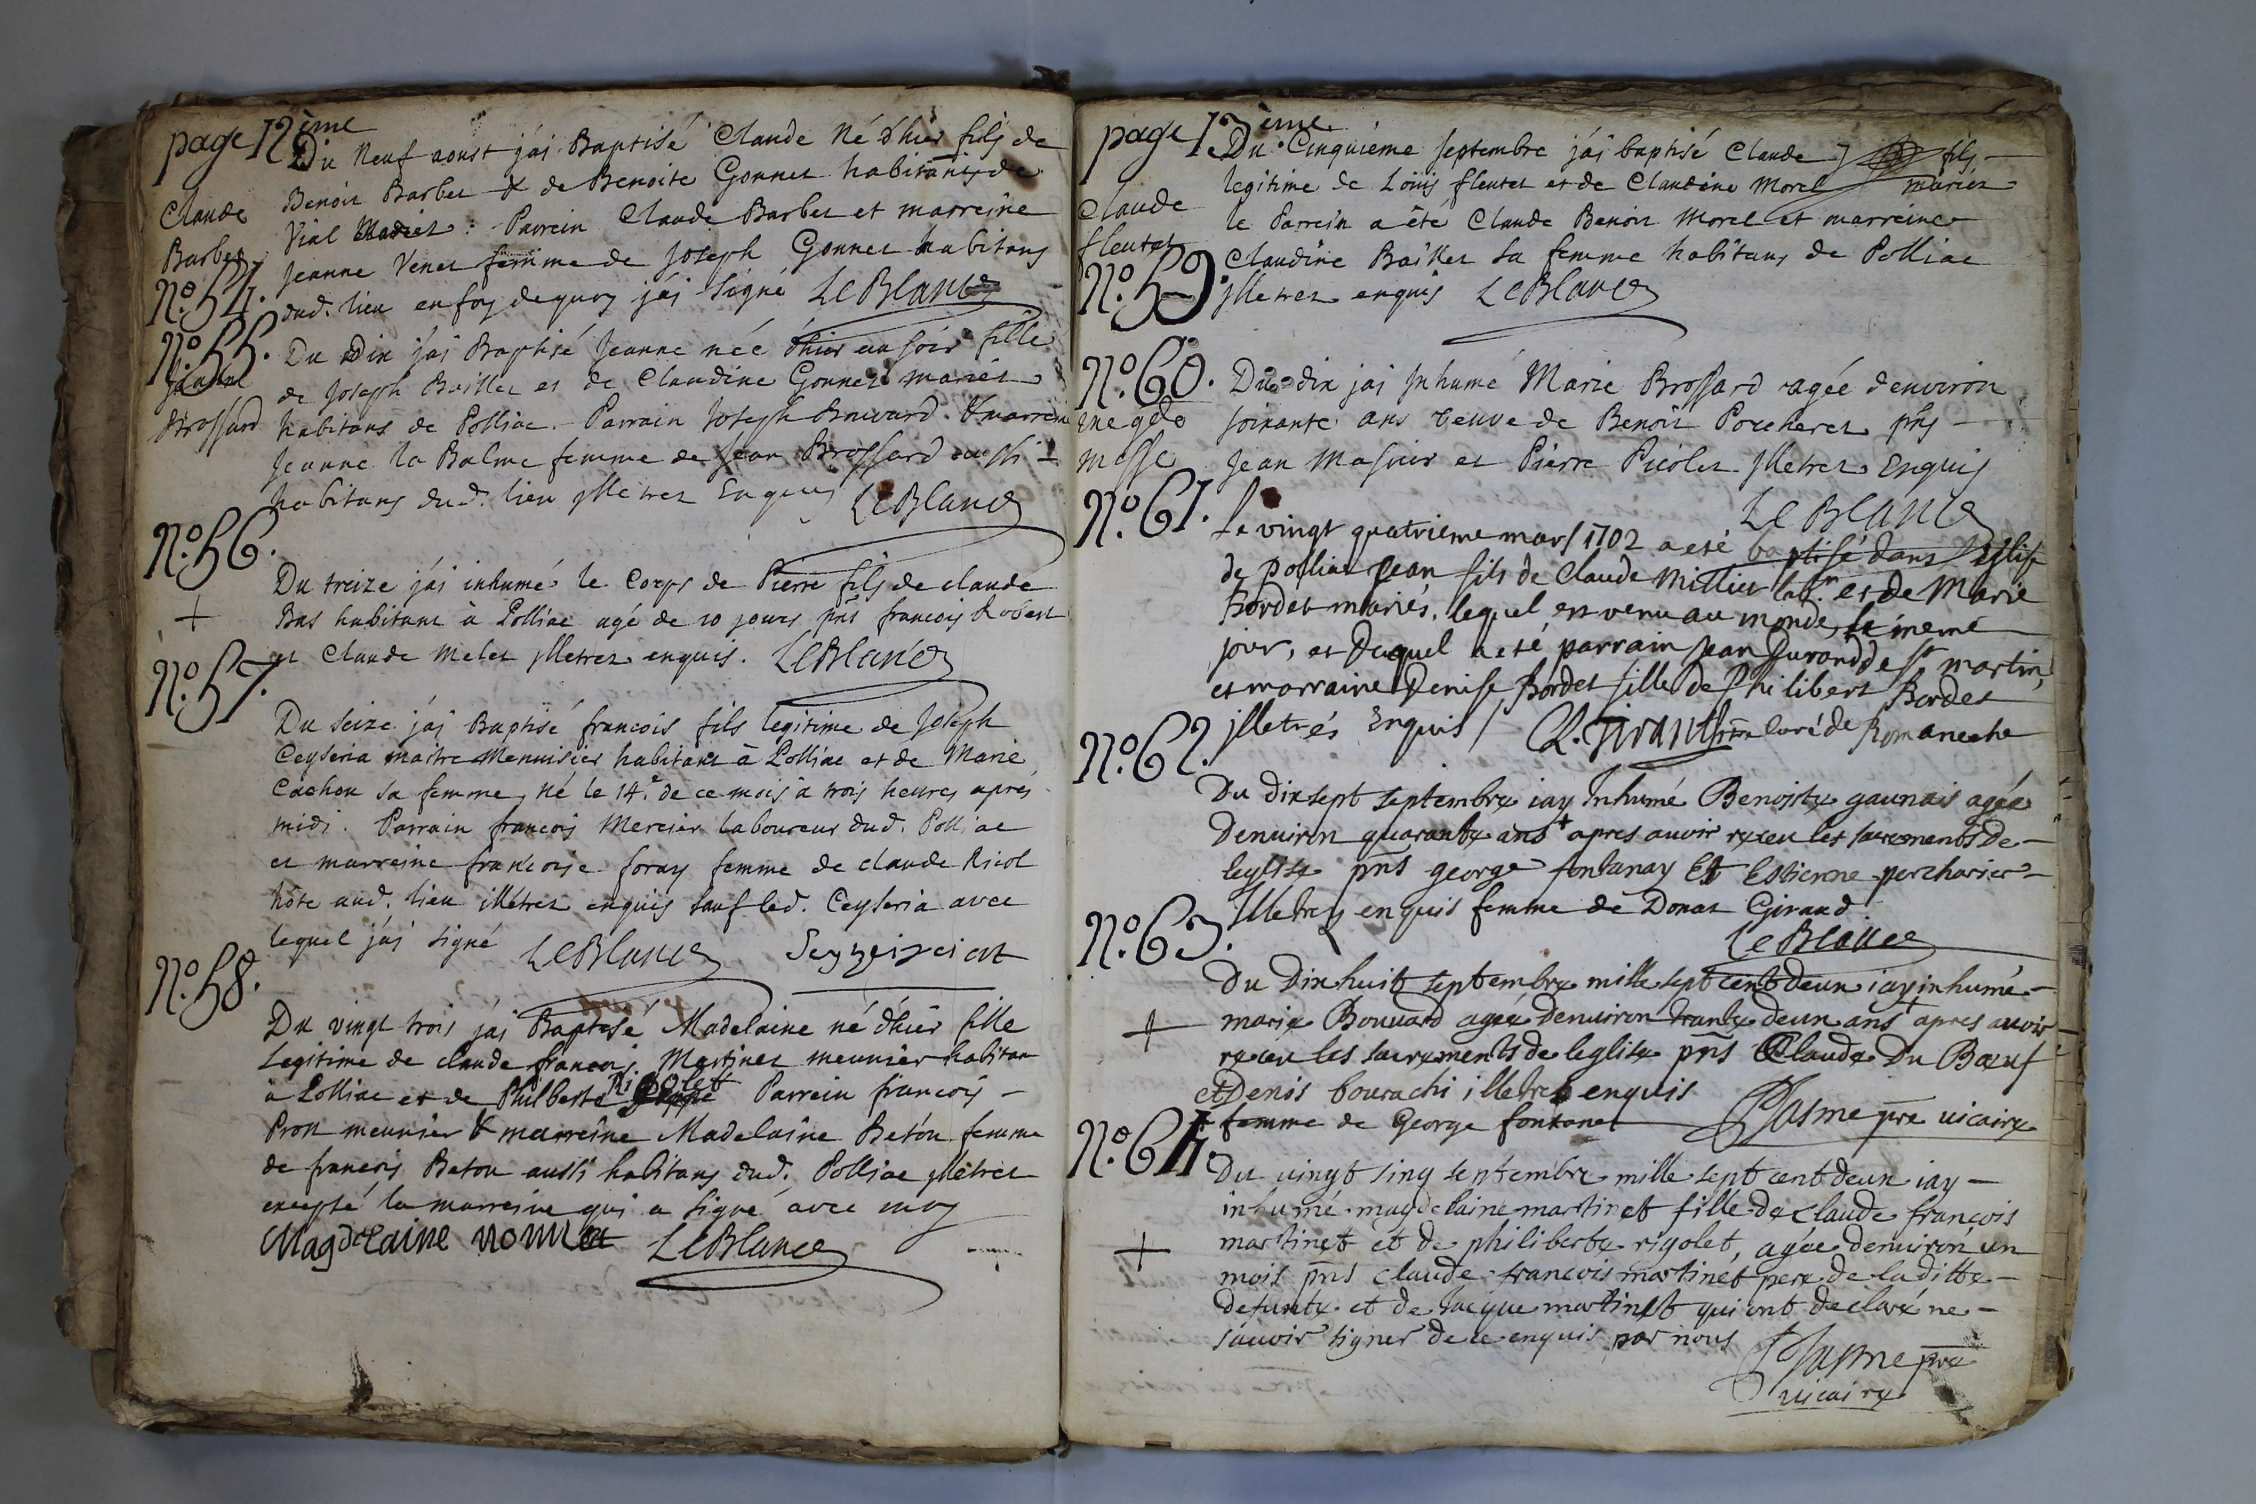 page 12ème
Du Neuf aoust jái Baptisé Claude Né d'hier fils de
Benoit Barbet & de Benoite Gonnet habitans de
Claude
Vial Mariez : Parrein Claude Barbet et marreine
Barbet
Jeanne Venet femme de Joseph Gonnet habitans
No. 54.
dud. lieu en foy dequoy jái signé LeBlanc
No. 55.
Du Dix jái Baptisé Jeanne née d'hier au soir fille
Jeanne
de Joseph Baillet et de Claudine Gonnet mariez
Brossard
habitans de Polliac. Parrain Joseph Bouvard. & marreine
Jeanne la Balme femme de Jean Brossard aussi
habitans dud. lieu jlletrez Enquis LeBlanc
No. 56.
Du treize jái inhumé le Corps de Pierre fils de claude
+
Bas habitant à Polliac agé de 10 jours pñs francois Robert
et Claude Melet jlletrez enquis. LeBlanc
No. 57.
Du seize jái Baptisé francois fils legitime de Joseph
Ceyseria maitre Menuisier habitant à Polliac et de Marie
Cachon sa femme, Né le 14.e de ce mois à trois heures aprés
midi. Parrain francois Mercier laboureur dud. Polliac
et marreine francoise foray femme de claude Ricol
hôte aud. lieu illétrez enquis sauf led. Ceyseria avec
lequel jái signé LeBlanc Seyzeiriat
No. 58.
Du vingt trois jái Baptisé Madelaine né d'hier fille
Legitime de claude francois Martinet meunier habitan
à Polliac et de Philberte Rigolet Parrein francois
Pron meunier & marreine Madelaine Betou femme
de francois Betou aussi habitans dud. Polliac jlletrez
excepté la marreine qui a signé avec moy
Magdelaine LeBlanc
page 13ème
Du Cinquiéme septembre jái baptisé Claude fils
legitime de Loüis fleutet et de Claudine Morel mariez
Claude
le Parrein a été Claude Benoit Morel et marreine
fleutet
Claudine Baillet sa femme habitans de Polliac
No. 59.
jlletrez enquis LeBlanc
No. 60.
Du dix jai Inhumé Marie Brossard agée d'environ
soixante ans veuve de Benoit Pocheret pñs
messe
Jean Masuir et Pierre Picolet jlletrez Enquis
LeBlanc
No. 61.
Le vingt quatrieme mars 1702 a eté baptisé dans l'eglise
de polliac Jean fils de Claude Millier lab.r et de Marie
Bordet mariés, lequel est venu au monde, le meme
jour, et Duquel a eté parrain Jean Durand de St martin,
et marraine Denise Bordet fille de Philibert Bordet
jlletrés Enquis / Curé de Romaneche
No. 62.
Du dix sept septembre iay Inhumé Benoiste gaunais agée
Denuiron quarante ans + apres auoir receu les sacrements de
leglise pñs george fontanay Et Estienne percharier
Illetres enquis femme de Donat Giraud
LeBlanc
No. 63.
Du Dix huit septembre mille sept cent deun iay inhumé
+
marie Bouuard agée Denuiron trante deun ans + apres auoir
receu les sacrements de leglise pñs Claude Du Bœuf
et Denis bourachi illetres enquis
+ femme de George fontanet Jasme pre uicaire
No. 64.
Du uingt sinq septembre mille sept cent deun iay
inhumé magdelaine martinet fille de claude françois
+
martinet et de philiberte rigolet, agée denuiron un
mois pñs claude francois martinet pere de laditte
defunte et de Jacque martinet qui ont declaré ne
sauoir signer de ce enquis par nous
Jasme pre
uicaire